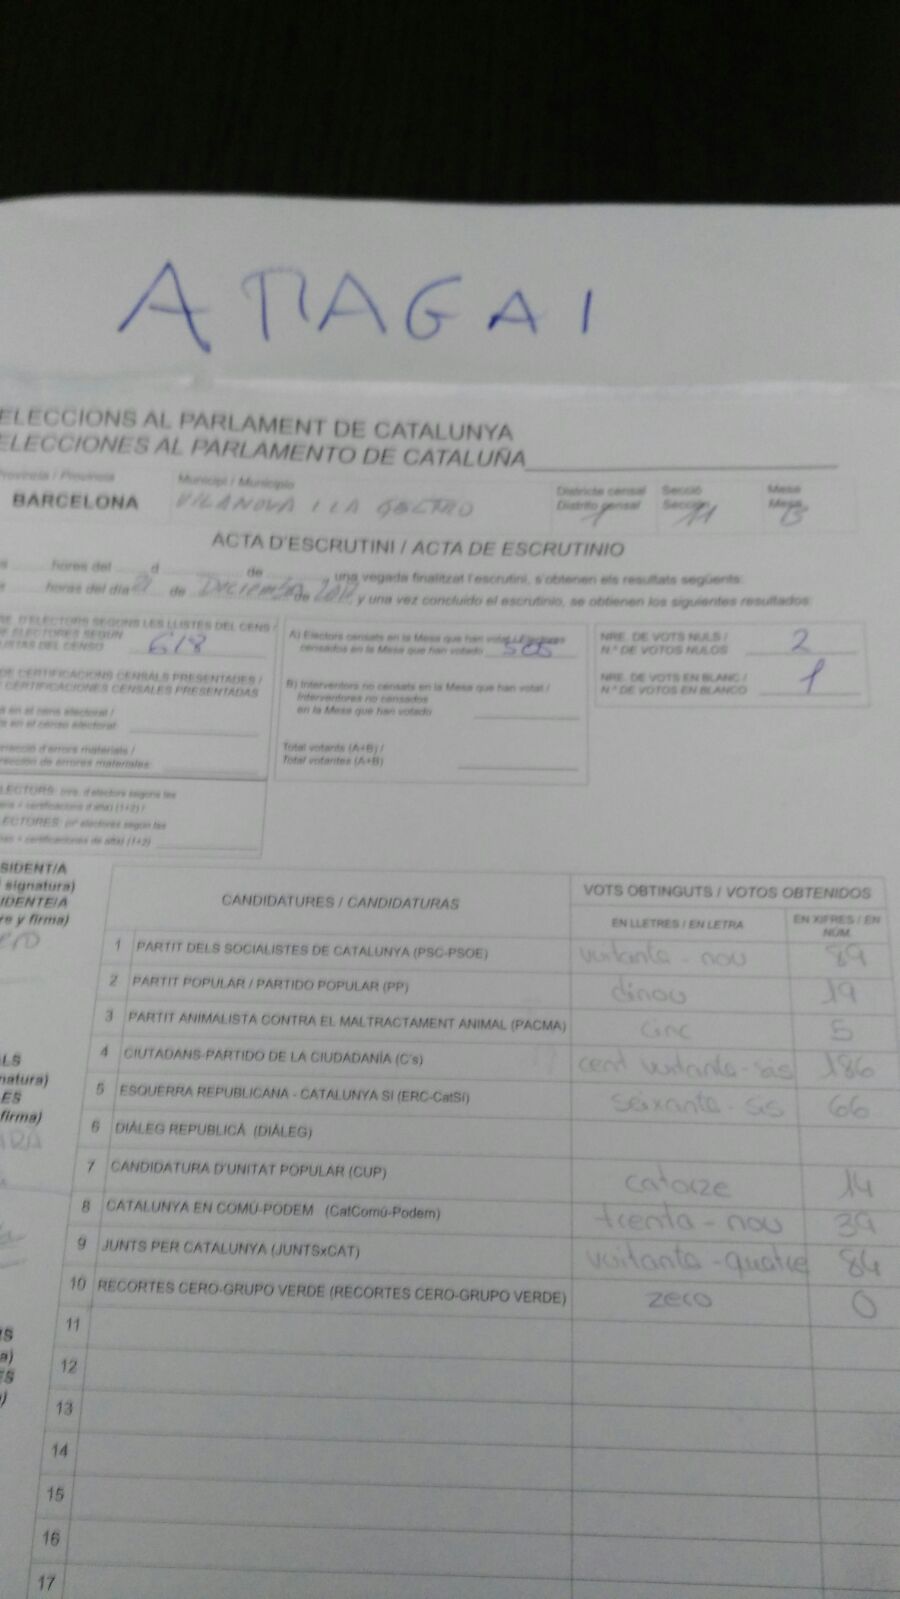 ELECCIONS AL PARLAMENT DE CATALUNYA
ELECCIONES AL PARLAMENTO DE CATALUÑA
Província / Provincia
Municipi / Municipio
Districte censal
Distrito censal
Secció
Sección
Mesa
Mesa
BARCELONA
VILANOVA I LA
1
11
B
ACTA D'ESCRUTINI / ACTA DE ESCRUTINIO
hores del d de , una vegada finalitzat l'escrutini, s'obtenen els resultats següents:
horas del día 21 de Diciembre de 2017 y una vez concluido el escrutinio, se obtienen los siguientes resultados:
E. D'ELECTORS SEGONS LES LLISTES DEL CENS /
E ELECTORES SEGÚN
LISTAS DEL CENSO 618
DE CERTIFICACIONS CENSALS PRESENTADES /
CERTIFICACIONES CENSALES PRESENTADAS
s en el cens electoral /
s en el censo electoral
rrecció d'errors materials /
rección de errores materiales
LECTORS: nre. d'electors segons les
ECTORES: nº electores según las
A) Electors censats en la Mesa que han votat / Electores
censados en la Mesa que han votado 505
B) Interventors no censats en la Mesa que han votat /
Interventores no censados
en la Mesa que han votado
Total votants (A+B) /
Total votantes (A+B)
NRE. DE VOTS NULS /
N.º DE VOTOS NULOS 2
NRE. DE VOTS EN BLANC /
N.º DE VOTOS EN BLANCO 1
SIDENT/A
signatura)
IDENTE/A
re y firma)
ALS
natura)
ES
firma)
CANDIDATURES / CANDIDATURAS
VOTS OBTINGUTS / VOTOS OBTENIDOS
EN LLETRES / EN LETRA
EN XIFRES / EN NÚM.
1 PARTIT DELS SOCIALISTES DE CATALUNYA (PSC-PSOE) vuitanta-nou 89
2 PARTIT POPULAR / PARTIDO POPULAR (PP) dinou 19
3 PARTIT ANIMALISTA CONTRA EL MALTRACTAMENT ANIMAL (PACMA) cinc 5
4 CIUTADANS-PARTIDO DE LA CIUDADANÍA (C's) cent vuitanta-sis 186
5 ESQUERRA REPUBLICANA - CATALUNYA SÍ (ERC-CatSí) seixanta-sis 66
6 DIÀLEG REPUBLICÀ (DIÀLEG)
7 CANDIDATURA D'UNITAT POPULAR (CUP) catorze 14
8 CATALUNYA EN COMÚ-PODEM (CatComú-Podem) trenta-nou 39
9 JUNTS PER CATALUNYA (JUNTSxCAT) vuitanta-quatre 84
10 RECORTES CERO-GRUPO VERDE (RECORTES CERO-GRUPO VERDE) zero 0
11
12
13
14
15
16
17